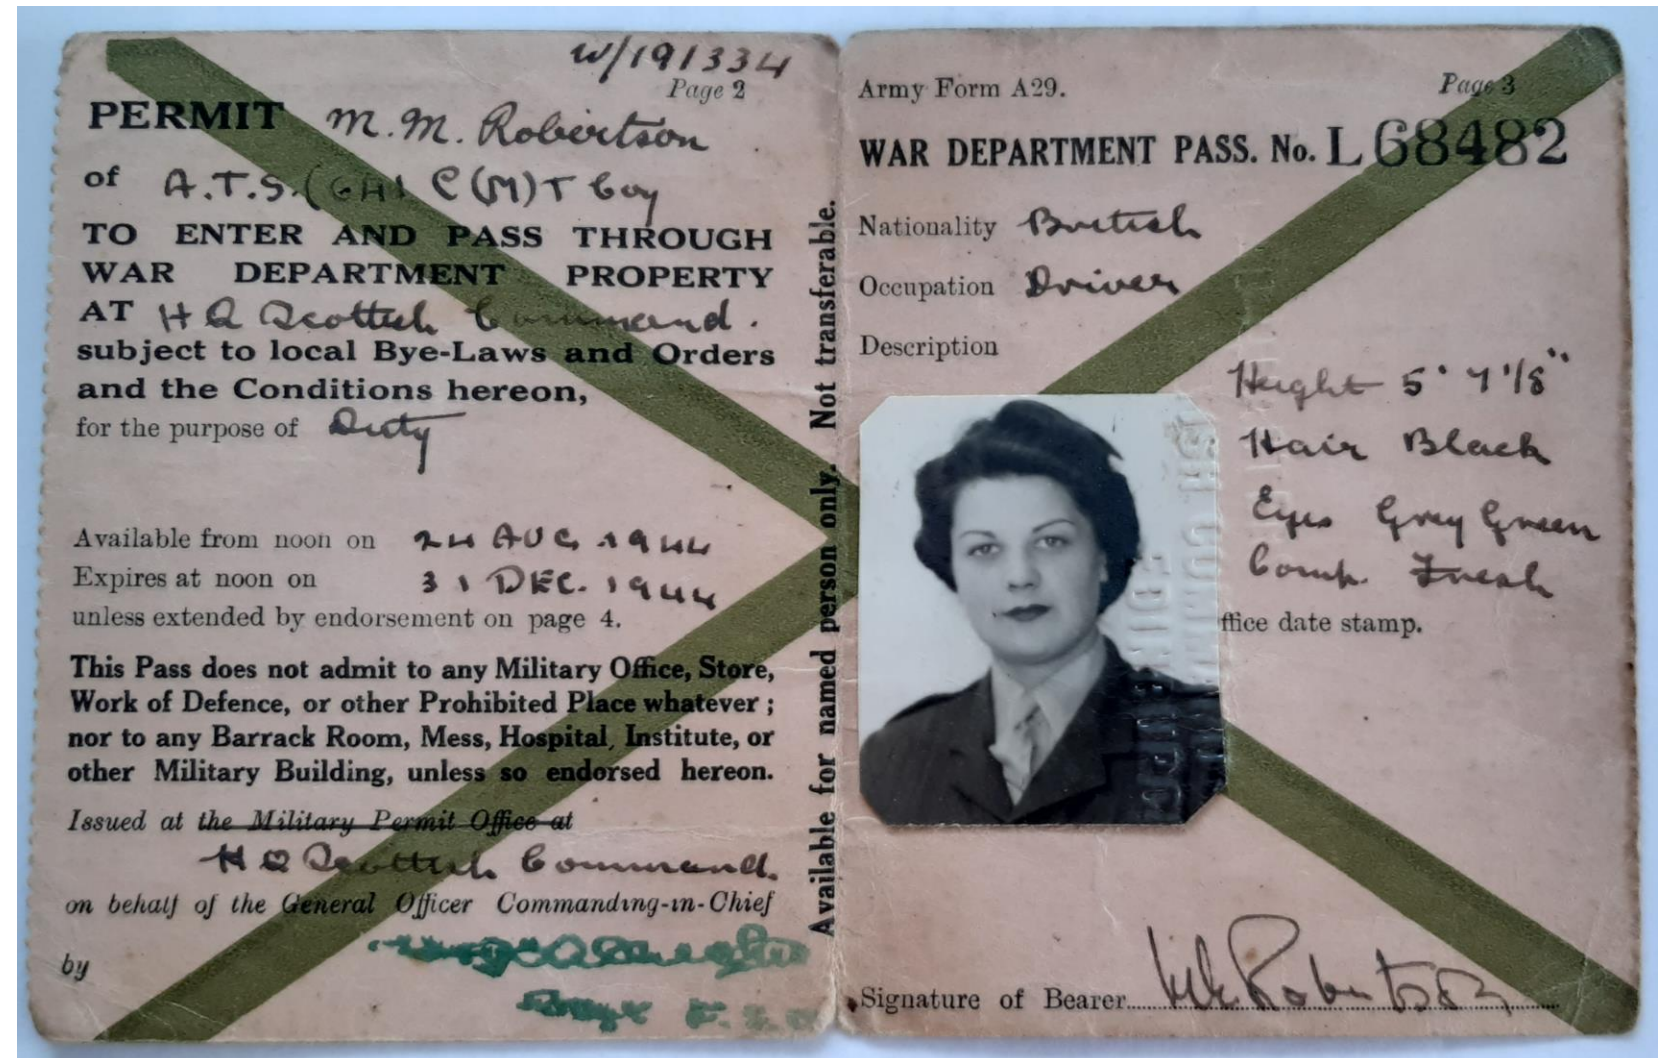 W/191334
Page 2
PERMIT M. M. Robertson
of A.T.S. (GHI C(M)T Coy
TO ENTER AND PASS THROUGH
WAR DEPARTMENT PROPERTY
AT H Q Scottish Command.
subject to local Bye-Laws and Orders
and the Conditions hereon,
for the purpose of Duty
Available from noon on 24 AUG 1944
Expires at noon on 31 DEC. 1944
unless extended by endorsement on page 4.
This Pass does not admit to any Military Office, Store,
Work of Defence, or other Prohibited Place whatever ;
nor to any Barrack Room, Mess, Hospital, Institute, or
other Military Building, unless so endorsed hereon.
Issued at the Military Permit Office at
H Q Scottish Command.
on behalf of the General Officer Commanding-in-Chief
by
Available for named person only. Not transferable.
Army Form A29.
Page 3
WAR DEPARTMENT PASS. No. L 68482
Nationality British
Occupation Driver
Description
Height 5' 7 1/8"
Hair Black
Eyes Grey Green
Comp. Fresh
ffice date stamp.
Signature of Bearer M. Robertson